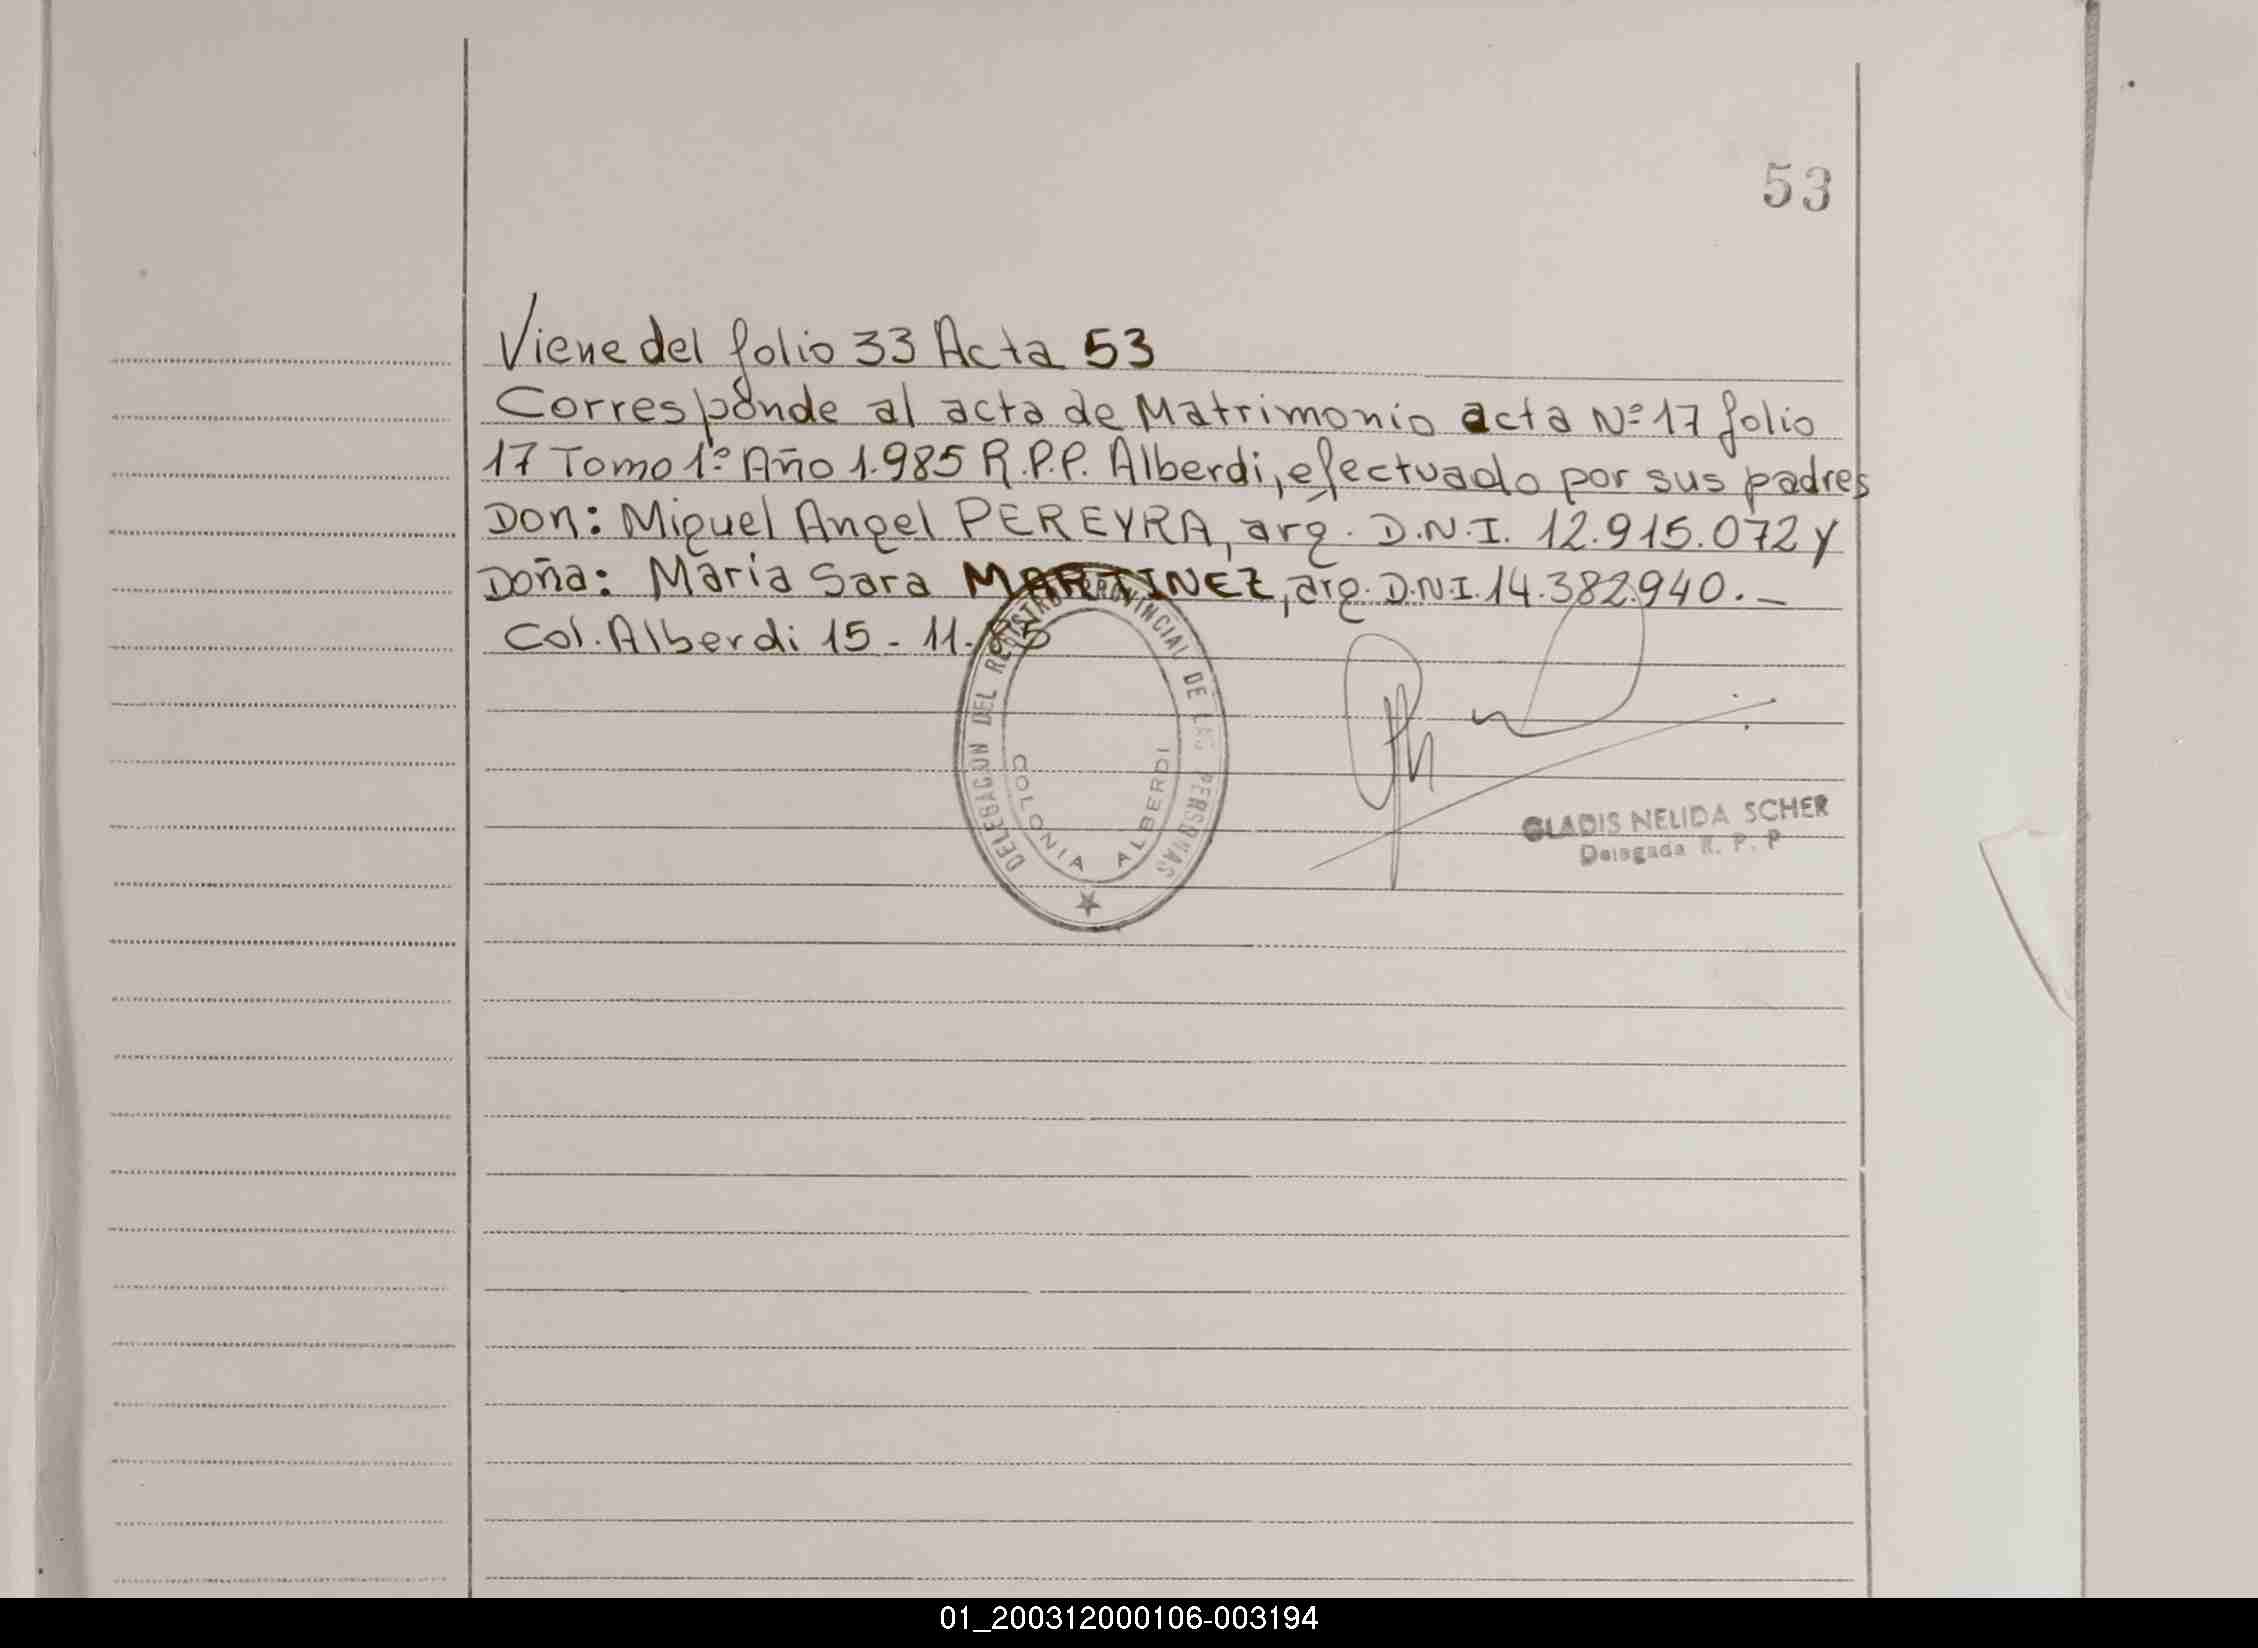 53
Viene del folio 33 Acta 53
Corresponde al acta de Matrimonio acta Nº 17 folio
17 Tomo 1º Año 1.985 R.P.P. Alberdi, efectuado por sus padres
Don: Miguel Angel PEREYRA, arg. D.N.I. 12.915.072 y
Doña: Maria Sara MARTINEZ, arg. D.N.I. 14.382.940.-
Col. Alberdi 15 - 11. 85
DELEGACION DEL REGISTRO PROVINCIAL DE LAS PERSONAS
COLONIA ALBERDI
GLADIS NELIDA SCHER
Delegada R. P. P
01_200312000106-003194